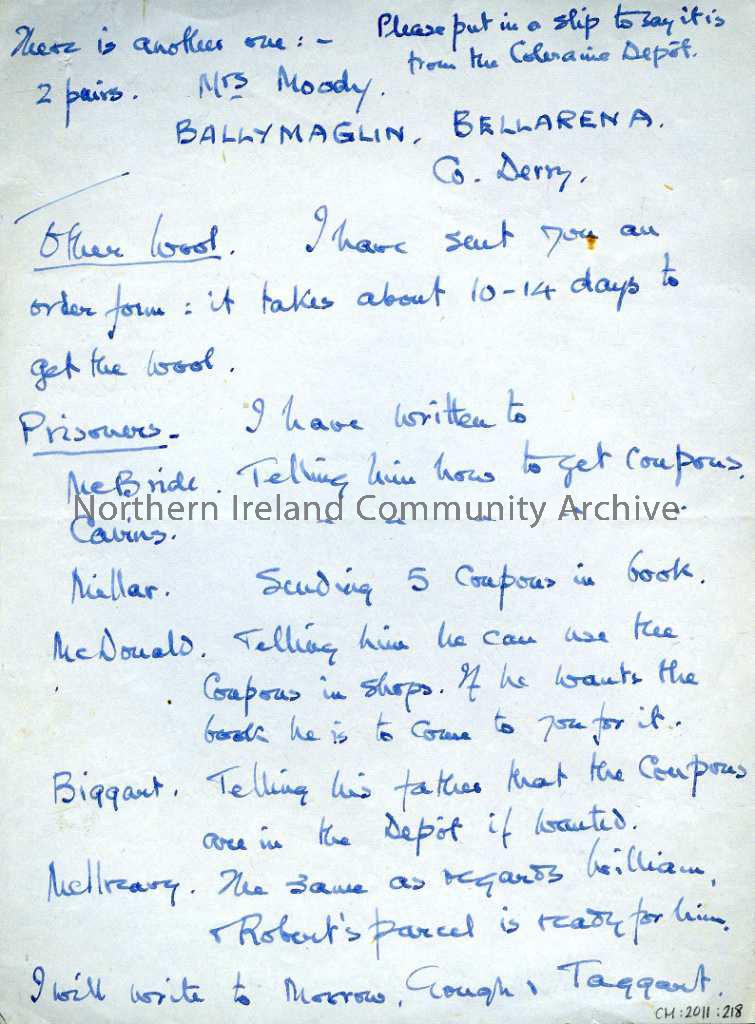 There is another one :- Please put in a slip to say it is
from the Coleraine Depôt.
2 pairs. Mrs Moody.
BALLYMAGLIN, BELLARENA.
Co. Derry.
Other Wool. I have sent you an
order form : it takes about 10-14 days to
get the wool.
Prisoners - I have written to
McBride. Telling him how to get coupons.
Northern Ireland Community Archive
Cairns. " " " " "
Millar. Sending 5 Coupons in book.
McDonald. Telling him he can use the
Coupons in shops. If he wants the
book he is to come to you for it.
Biggart. Telling his father that the Coupons
are in the Depôt if wanted.
McIlreavy. The same as regards William,
& Robert's parcel is ready for him.
I will write to Morrow, Gough, Taggart.
CM:2011:218